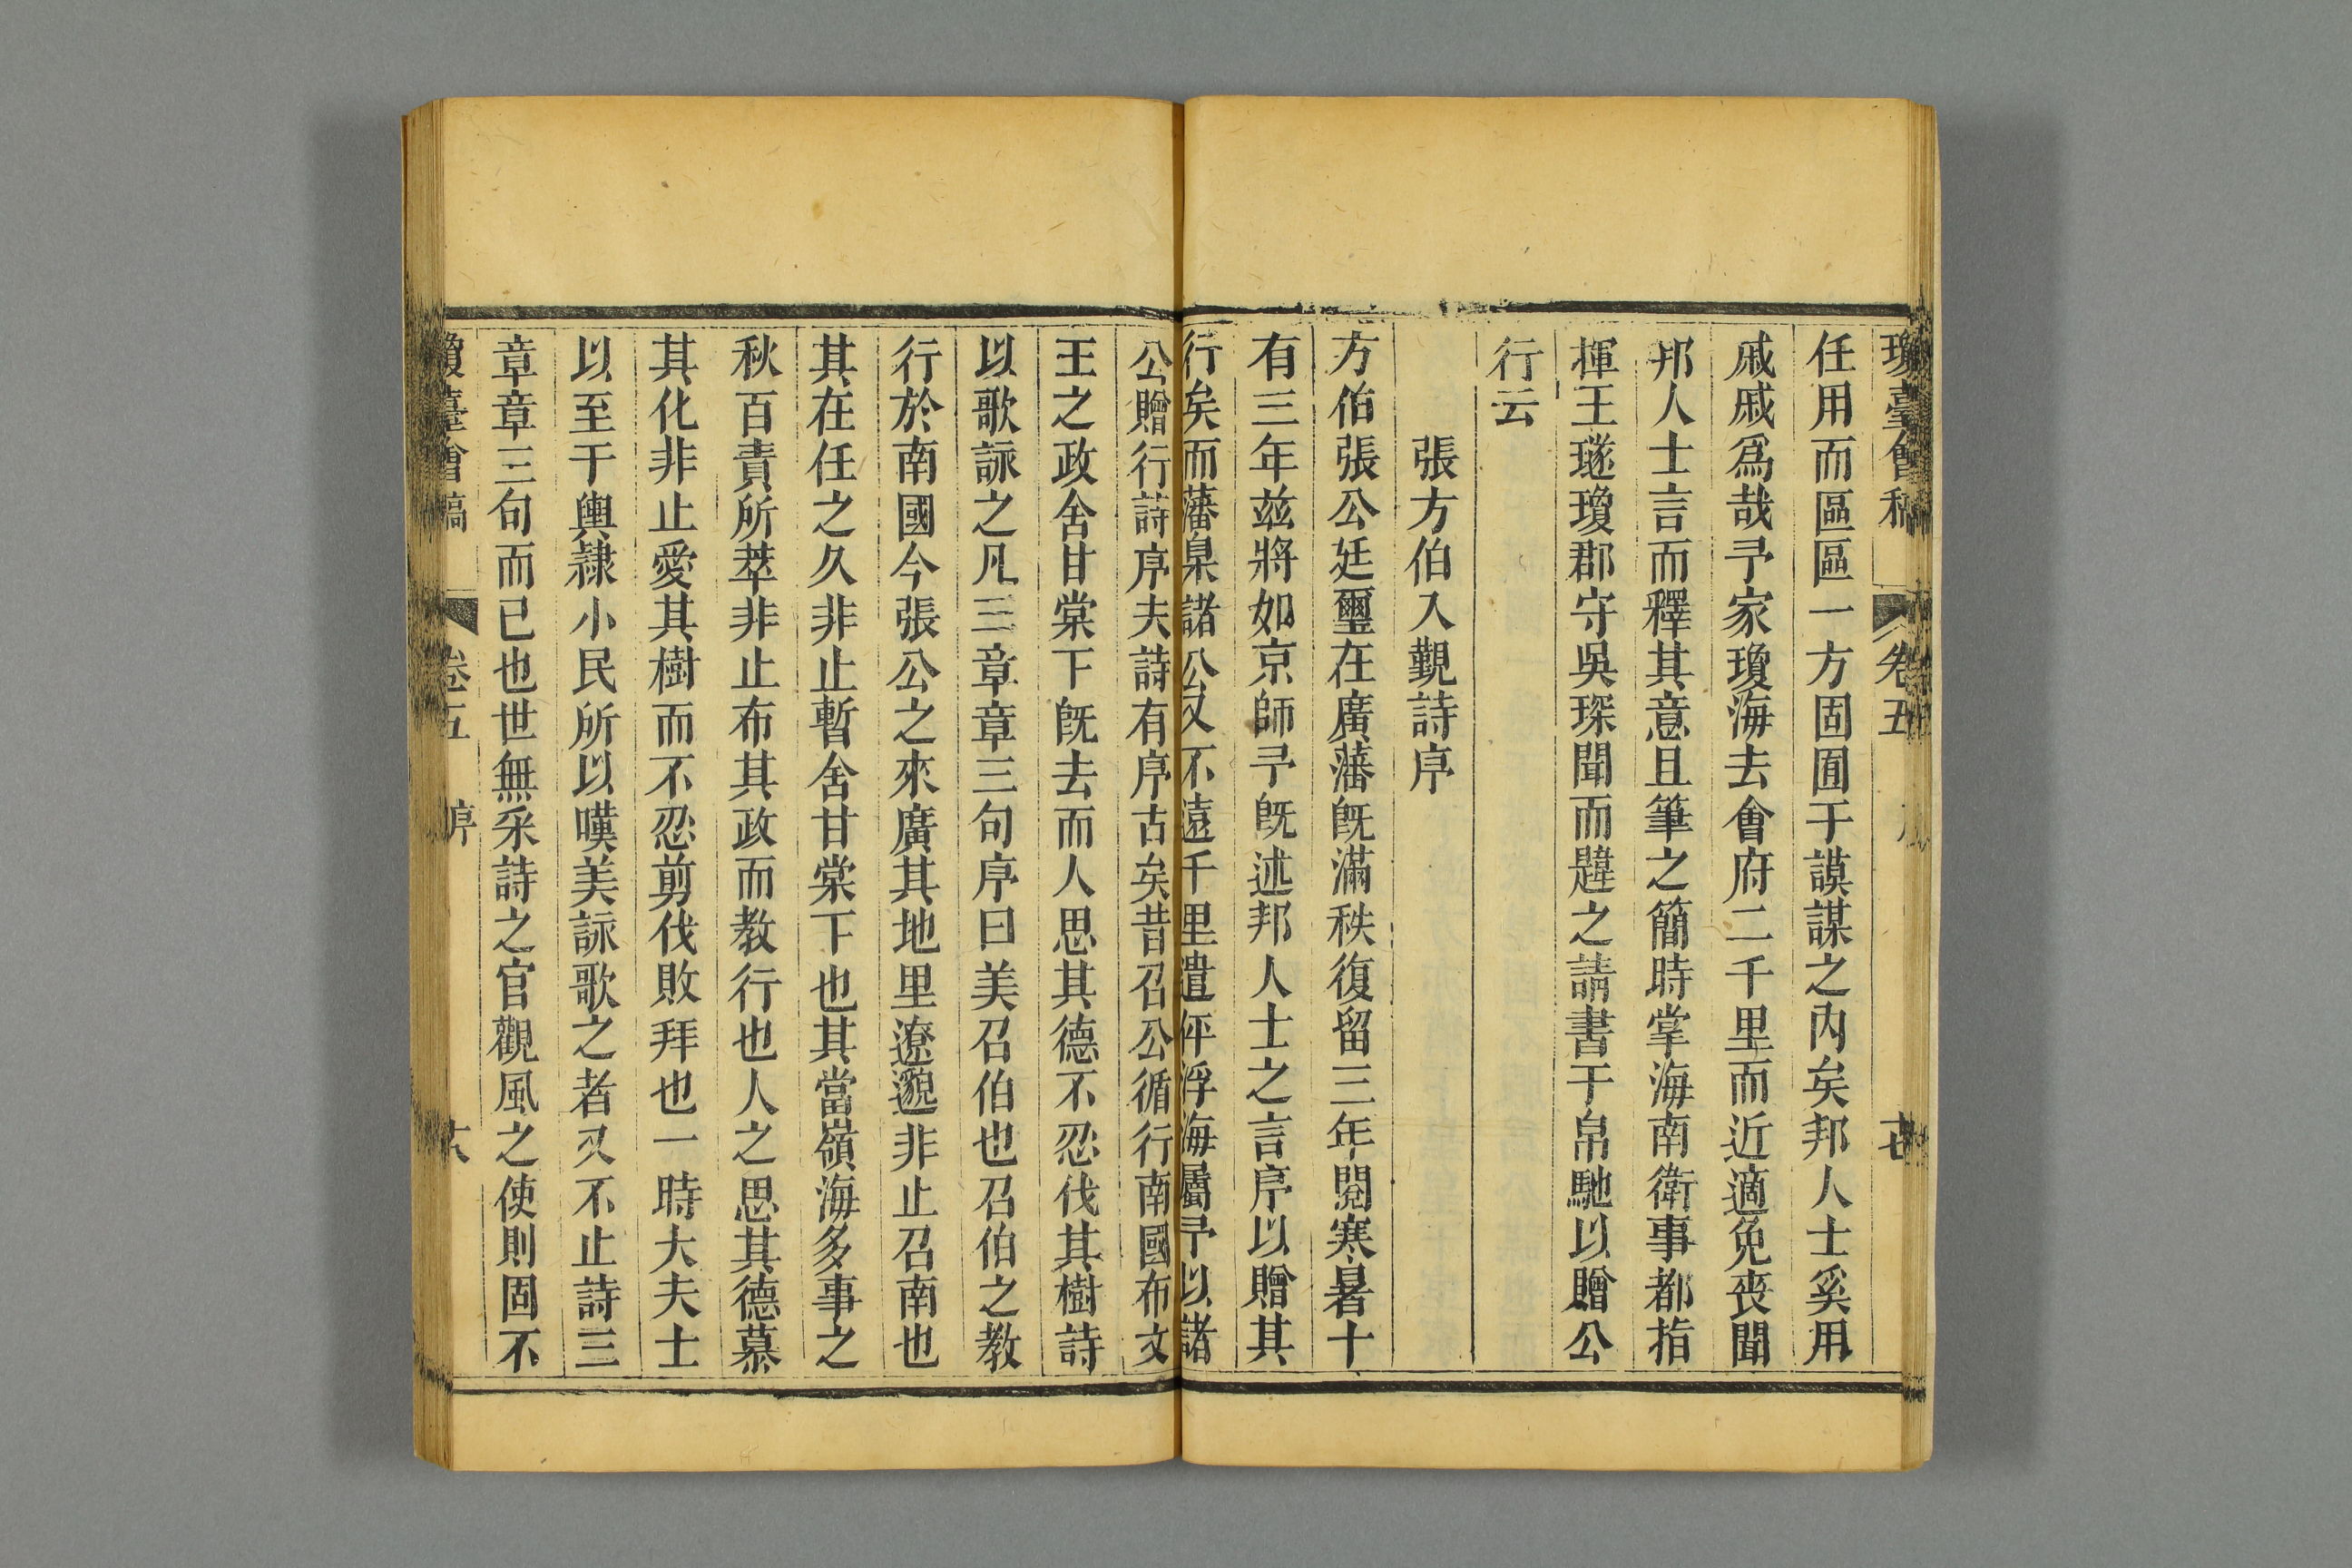 瓊臺會稿 卷五
任用而區區一方固囿于謨謀之內矣邦人士奚用
戚戚爲哉予家瓊海去會府二千里而近適免喪聞
邦人士言而釋其意且筆之簡時掌海南衛事都指
揮王璲瓊郡守吳琛聞而韙之請書于帛馳以贈公
行云
張方伯入覲詩序
方伯張公廷璽在廣藩旣滿秩復留三年閱寒暑十
有三年玆將如京師予旣述邦人士之言序以贈其
行矣而藩臬諸公又不遠千里遣伻浮海屬予以諸
公贈行詩序夫詩有序古矣昔召公循行南國布文
王之政舍甘棠下旣去而人思其德不忍伐其樹詩
以歌詠之凡三章章三句序曰美召伯也召伯之教
行於南國今張公之來廣其地里遼邈非止召南也
其在任之久非止暫舍甘棠下也其當嶺海多事之
秋百責所萃非止布其政而教行也人之思其德慕
其化非止愛其樹而不忍剪伐敗拜也一時大夫士
以至于輿隷小民所以嘆美詠歌之者又不止詩三
章章三句而已也世無采詩之官觀風之使則固不
瓊臺會稿 卷五 序